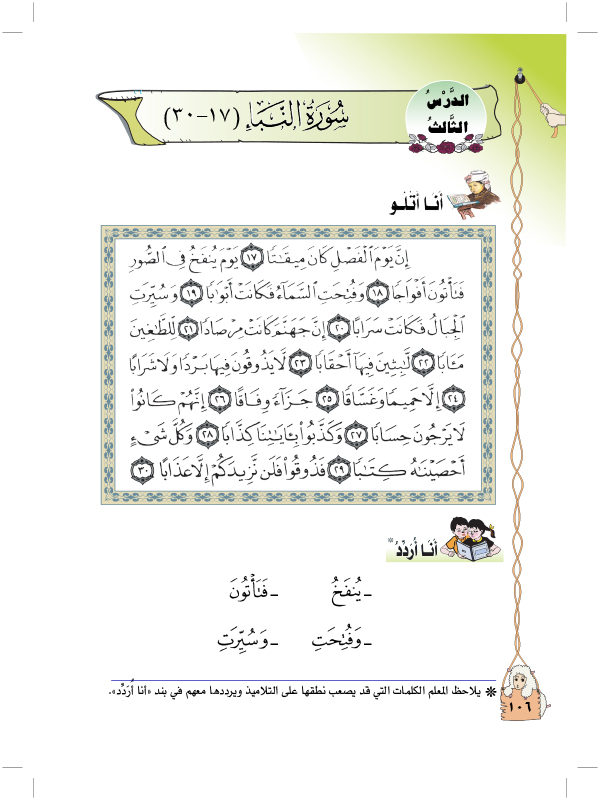 الدَّرْسُ
الثَّالِثُ
سُورَةُ النَّبَإِ (١٧-٣٠)
أَنَـا أَتْلُـو
إِنَّ يَوْمَ ٱلْفَصْلِ كَانَ مِيقَٰتًا ١٧ يَوْمَ يُنفَخُ فِى ٱلصُّورِ
فَتَأْتُونَ أَفْوَاجًا ١٨ وَفُتِحَتِ ٱلسَّمَآءُ فَكَانَتْ أَبْوَٰبًا ١٩ وَسُيِّرَتِ
ٱلْجِبَالُ فَكَانَتْ سَرَابًا ٢٠ إِنَّ جَهَنَّمَ كَانَتْ مِرْصَادًا ٢١ لِّلطَّٰغِينَ
مَـَٔابًا ٢٢ لَّٰبِثِينَ فِيهَآ أَحْقَابًا ٢٣ لَّا يَذُوقُونَ فِيهَا بَرْدًا وَلَا شَرَابًا
٢٤ إِلَّا حَمِيمًا وَغَسَّاقًا ٢٥ جَزَآءً وِفَاقًا ٢٦ إِنَّهُمْ كَانُوا۟
لَا يَرْجُونَ حِسَابًا ٢٧ وَكَذَّبُوا۟ بِـَٔايَٰتِنَا كِذَّابًا ٢٨ وَكُلَّ شَىْءٍ
أَحْصَيْنَٰهُ كِتَٰبًا ٢٩ فَذُوقُوا۟ فَلَن نَّزِيدَكُمْ إِلَّا عَذَابًا ٣٠
أَنَـا أُرَدِّدُ *
ـ يُنفَخُ ـ فَتَأْتُونَ
ـ وَفُتِحَتِ ـ وَسُيِّرَتِ
* يلاحظ المعلم الكلمات التي قد يصعب نطقها على التلاميذ ويرددها معهم في بند «أنا أُرَدِّد».
١٠٦